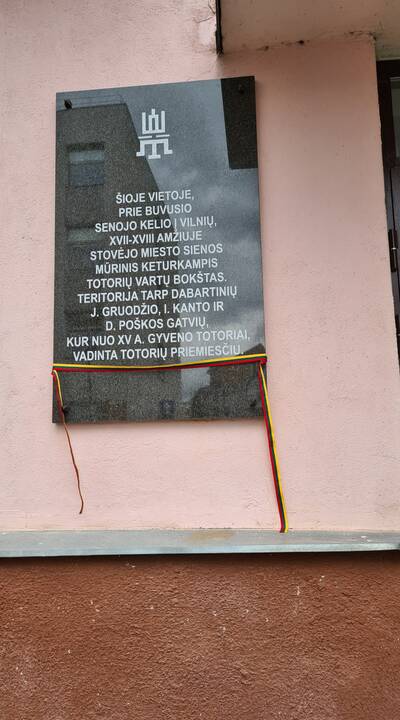 ŠIOJE VIETOJE,
PRIE BUVUSIO
SENOJO KELIO Į VILNIŲ,
XVII-XVIII AMŽIUJE
STOVĖJO MIESTO SIENOS
MŪRINIS KETURKAMPIS
TOTORIŲ VARTŲ BOKŠTAS.
TERITORIJA TARP DABARTINIŲ
J. GRUODŽIO, I. KANTO IR
D. POŠKOS GATVIŲ,
KUR NUO XV A. GYVENO TOTORIAI,
VADINTA TOTORIŲ PRIEMIESČIU.